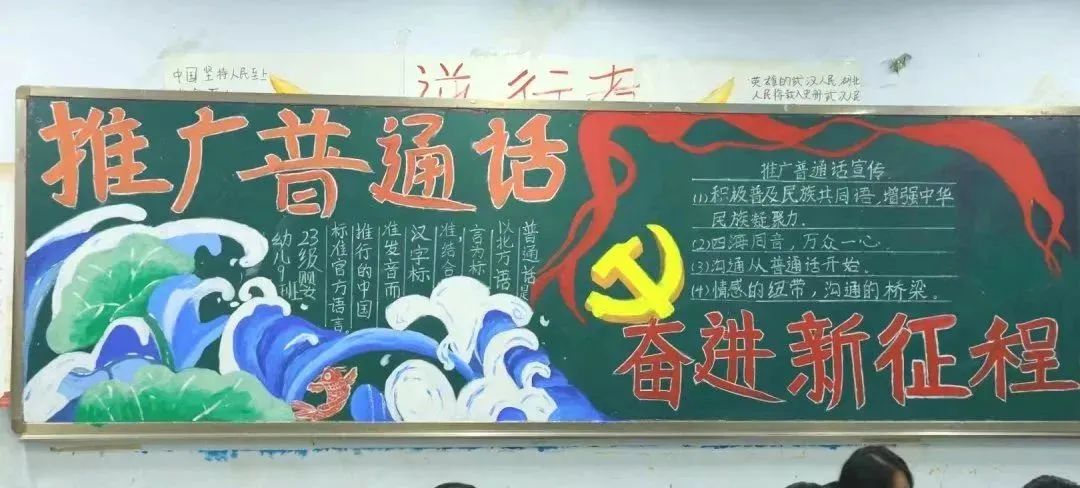 中国坚持人民至上
逆行者
英雄的武汉人民,湖北
人民将载入史册
推广普通话
普通话是
以北方语
言为标
准结合
汉字标
准发音而
推行的中国
标准官方语言
23级婴
幼儿9班
推广普通话宣传
(1)积极普及民族共同语,增强中华
民族凝聚力.
(2)四海同音,万众一心.
(3)沟通从普通话开始.
(4)情感的纽带,沟通的桥梁。
奋进新征程